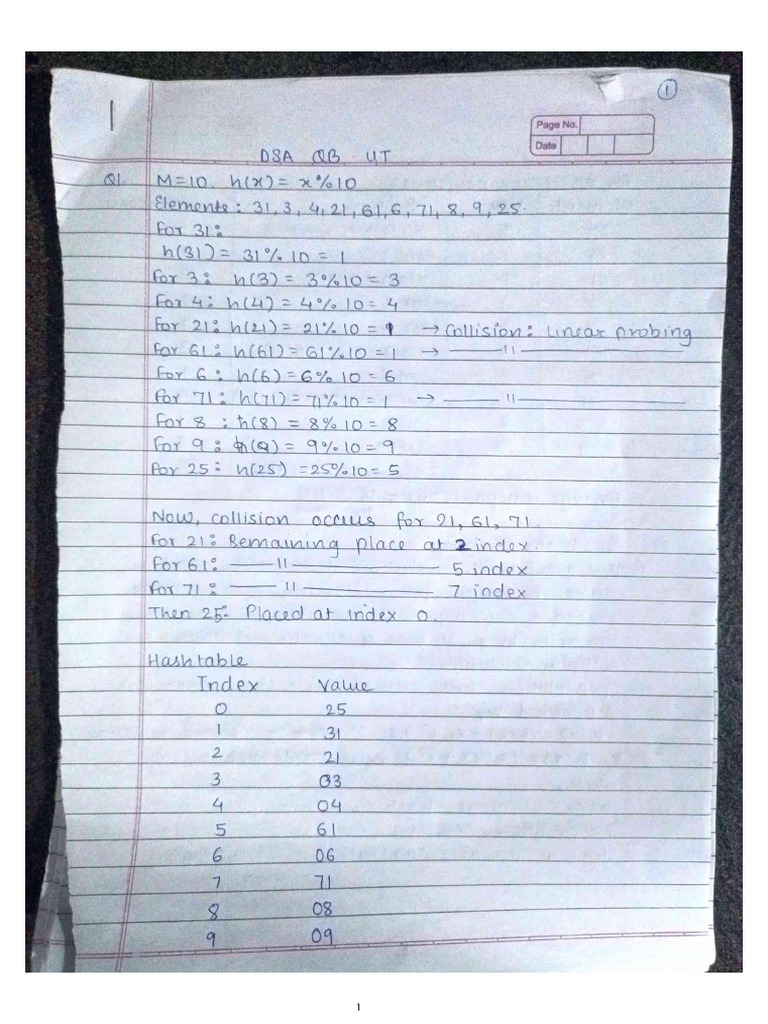 1
①
Page No.
Date
DSA QB UT
Q1. M=10. h(x) = x%10
Elements: 31, 3, 4, 21, 61, 6, 71, 8, 9, 25.
For 31:
h(31) = 31% 10 = 1
For 3: h(3) = 3%10 = 3
For 4: h(4) = 4% 10 = 4
For 21: h(21) = 21% 10 = 1 → Collision: linear probing
For 61: h(61) = 61%10 = 1 → —— 11 ——
For 6: h(6) = 6% 10 = 6
For 71: h(71) = 71% 10 = 1 → —— 11 ——
For 8: h(8) = 8% 10 = 8
For 9: h(9) = 9% 10 = 9
For 25: h(25) = 25%10 = 5
Now, collision occurs for 21, 61, 71.
For 21: Remaining place at 2 index.
For 61: —— 11 —— 5 index
For 71: —— 11 —— 7 index
Then 25: Placed at index 0.
Hashtable
Index Value
0 25
1 31
2 21
3 03
4 04
5 61
6 06
7 71
8 08
9 09
1